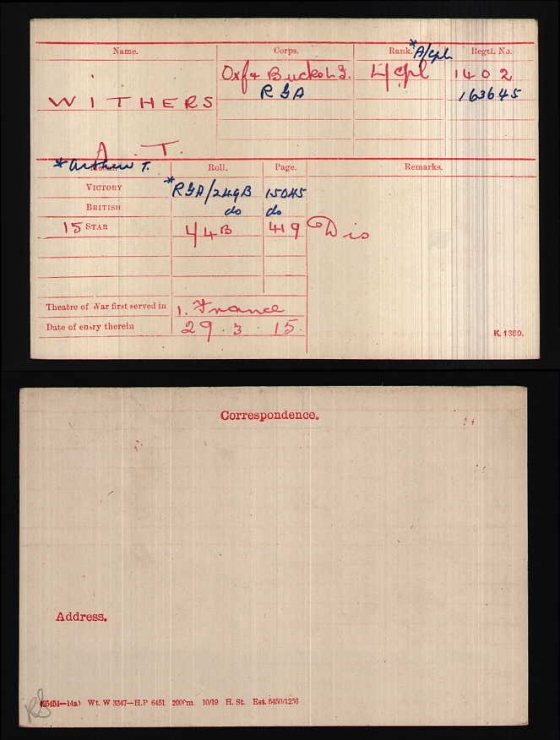 Name. Corps. Rank. *A/Cpl Regtl. No.
WITHERS Oxf & Bucks L.I. L/Cpl 1402
RGA 163645
A. T.
*Arthur T. Roll. Page. Remarks.
VICTORY *RGA/249B 15045
BRITISH do do
15 STAR 44B 419 Dis
Theatre of War first served in 1. France
Date of entry therein 29.3.15.
K. 1380.
Correspondence.
Address.
Wt. W 3347—H.P 6451 200'm 10/19 H. St. Est.